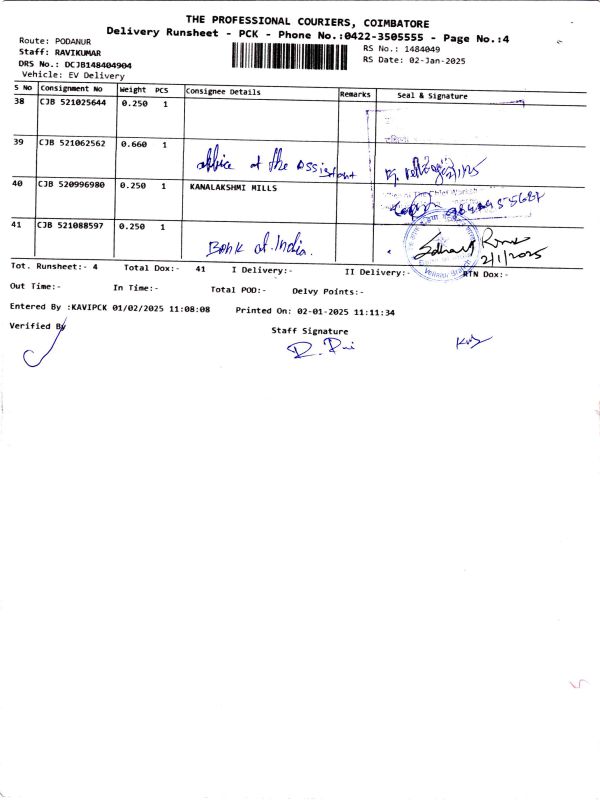 THE PROFESSIONAL COURIERS, COIMBATORE
Delivery Runsheet - PCK - Phone No.:0422-3505555 - Page No.:4
Route: PODANUR
RS No.: 1484049
Staff: RAVIKUMAR
RS Date: 02-Jan-2025
DRS No.: DCJB148404904
Vehicle: EV Delivery
S No Consignment No Weight PCS Consignee Details Remarks Seal & Signature
38 CJB 521025644 0.250 1
39 CJB 521062562 0.660 1
office of the Assistant
40 CJB 520996980 0.250 1 KANALAKSHMI MILLS
41 CJB 521088597 0.250 1
Bank of India.
2/1/2025
Tot. Runsheet:- 4 Total Dox:- 41 I Delivery:- II Delivery:- RTN Dox:-
Out Time:- In Time:- Total POD:- Delvy Points:-
Entered By :KAVIPCK 01/02/2025 11:08:08 Printed On: 02-01-2025 11:11:34
Verified By
Staff Signature